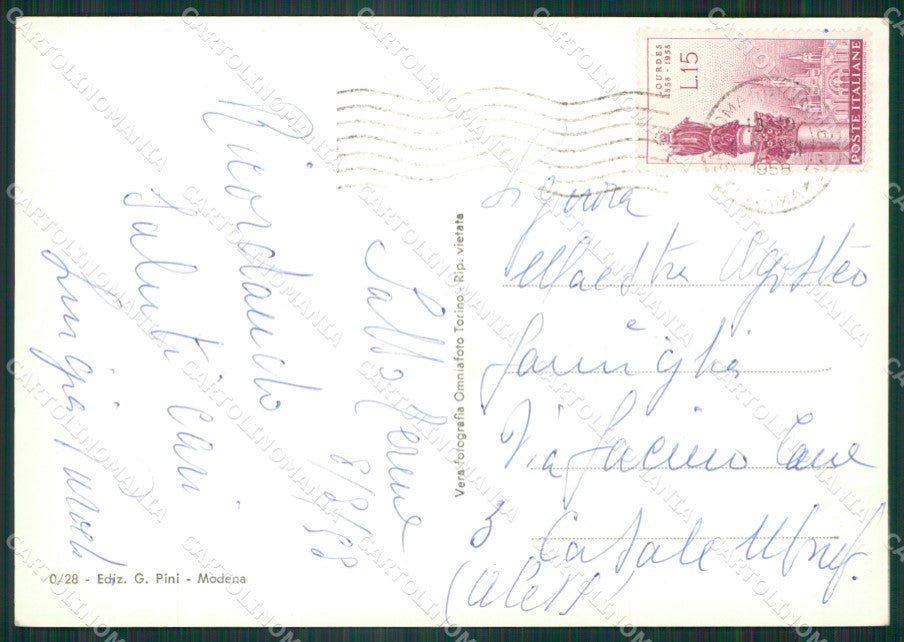 LOURDES
1858 - 1958
L.15
POSTE ITALIANE
1958
Salso Terme
8/8/58
Ricordando
Saluti cari
Vera fotografia Omniafoto Torino - Rip. vietata
Signora
Maestra Agosteo
e
Famiglia
Via Facino Cane
3
Casale Monf.
(Aless)
0/28 - Ediz. G. Pini - Modena
CARTOLINOMANIA